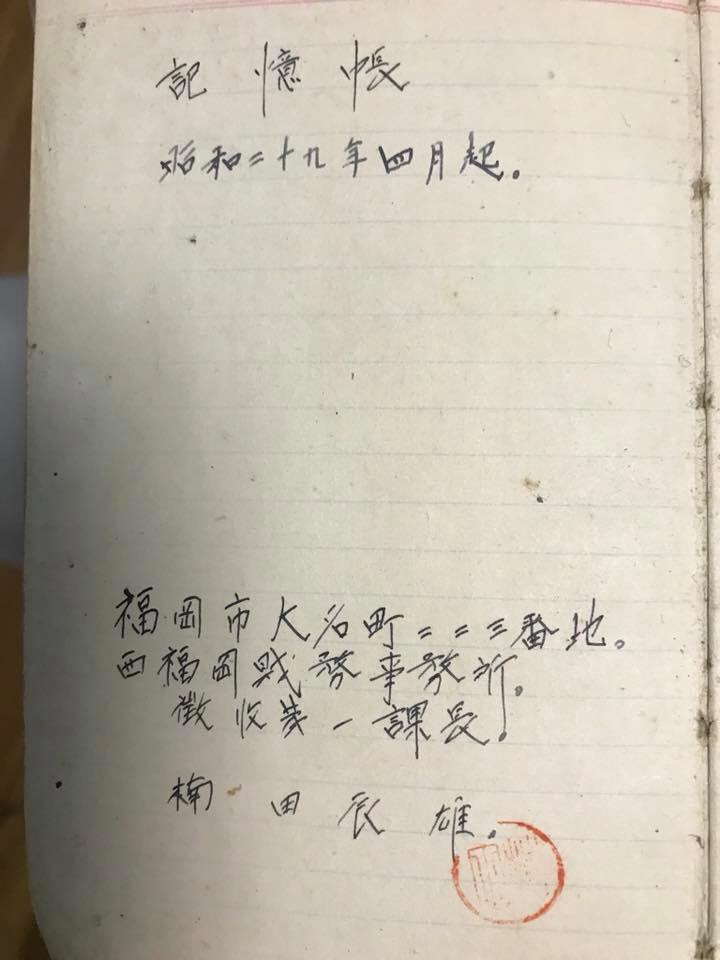 記憶帳
昭和二十九年四月起。
福岡市大名町二二三番地。
西福岡財務事務所。
徴收第一課長。
楠田辰雄。